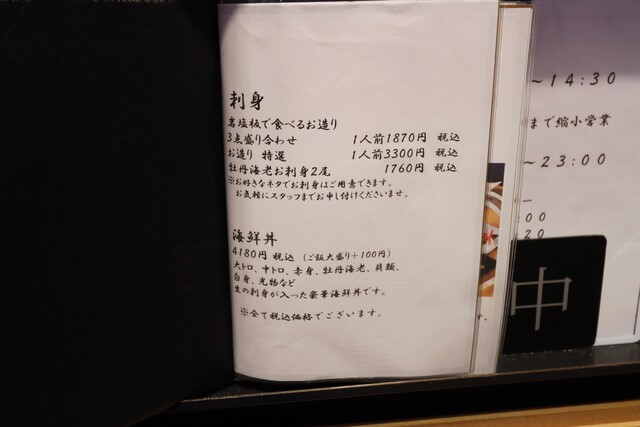 刺身
岩塩板で食べるお造り
3点盛り合わせ 1人前1870円 税込
お造り 特選 1人前3300円 税込
牡丹海老お刺身2尾 1760円 税込
※お好きなネタでお刺身はご用意できます。
お気軽にスタッフまでお申し付けくださいませ。
海鮮丼
4180円 税込 (ご飯大盛り+100円)
大トロ、中トロ、赤身、牡丹海老、貝類、
白身、光物など
生の刺身が入った豪華海鮮丼です。
※全て税込価格でございます。
～14:30
まで縮小営業
～23:00
:00
:20
す。
中